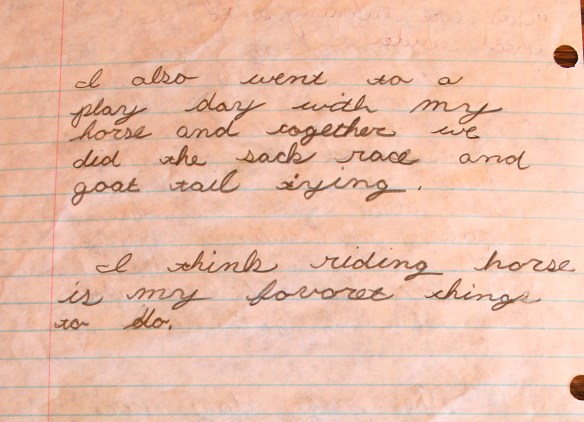 I also went to a
play day with my
horse and together we
did the sack race and
goat tail tying.
I think riding horse
is my favoret things
to do.